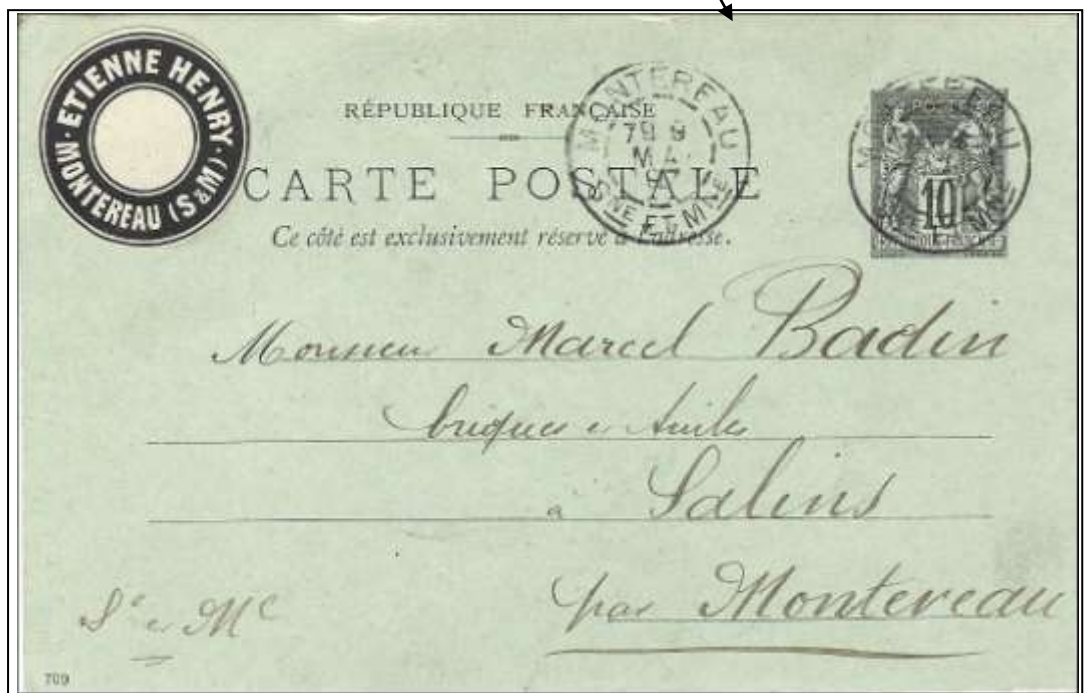 ETIENNE HENRY · (M)
MONTEREAU (S&M)
RÉPUBLIQUE FRANÇAISE
CARTE POSTALE
Ce côté est exclusivement réservé à l'adresse.
MONTEREAU
MA
SNE ET MNE
10
Monsieur Marcel Badin
briques et tuiles
à Salins
par Montereau
Se et Me
709